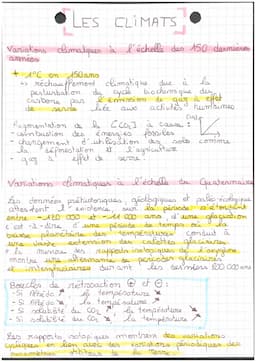 LES CLIMATS
Variations climatiques à l'échelle des 150 dernières
années
+ 1°C en 150 ans
→ réchauffement climatique due à la
perturbation du cycle biochimique du
carbone par l'émission de gaz à effet
de serre liée aux activités humaines
Augmentation de la [CO2] à cause :
- combustion des énergies fossiles
- changement d'utilisation des sols comme
la déforestation et l'agriculture
- gaz à effet de serre.
Variations climatiques à l'échelle du Quaternaire
Les données préhistoriques, géologiques et paléo-écologiques
attestent l'existence, sur la période s'étendant
entre -120 000 et -11 000 ans, d'une glaciation
c'est-à-dire d'une période de temps où la
baisse planétaire des températures conduit à
une vaste extension des calottes glaciaires.
la mesure des rapports isotopiques de l'oxygène
montre une alternance de périodes glaciaires
et interglaciaires durant les derniers 800 000 ans
Boucles de rétroaction ⊕ et ⊖ :
- Si Albédo, la température
- Si Albédo, la température
- Si solubilité du CO2, la température
- Si solubilité du CO2, la température
Les rapports isotopiques montrent des variations
cycliques en lien avec des variations périodiques des
paramètres orbitaux de la Terre.